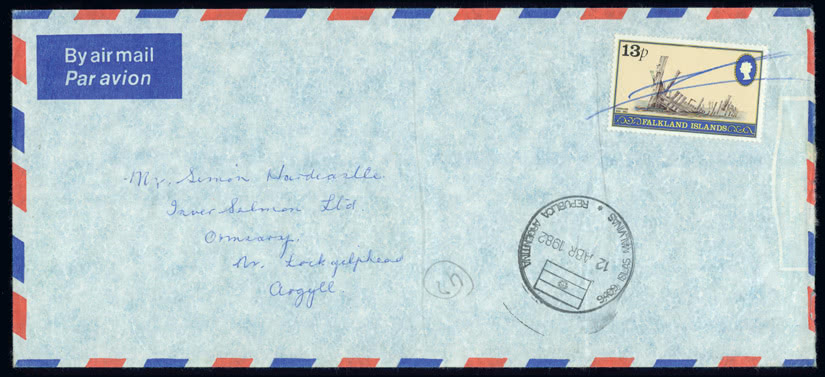 By air mail
Par avion
13p
FALKLAND ISLANDS
Mr. Simon Hardcastle
Inver Salmon Ltd.
Ormsary,
Nr. Lochgilphead
Argyll.
9409 ISLAS MALVINAS * REPUBLICA ARGENTINA
12 ABR 1982